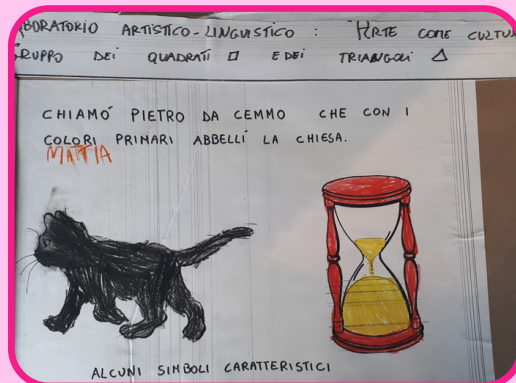 LABORATORIO ARTISTICO-LINGUISTICO : "ARTE COME CULTU
GRUPPO DEI QUADRATI □ E DEI TRIANGOLI △
CHIAMÓ PIETRO DA CEMMO CHE CON I
COLORI PRIMARI ABBELLÍ LA CHIESA.
MATTIA
ALCUNI SIMBOLI CARATTERISTICI